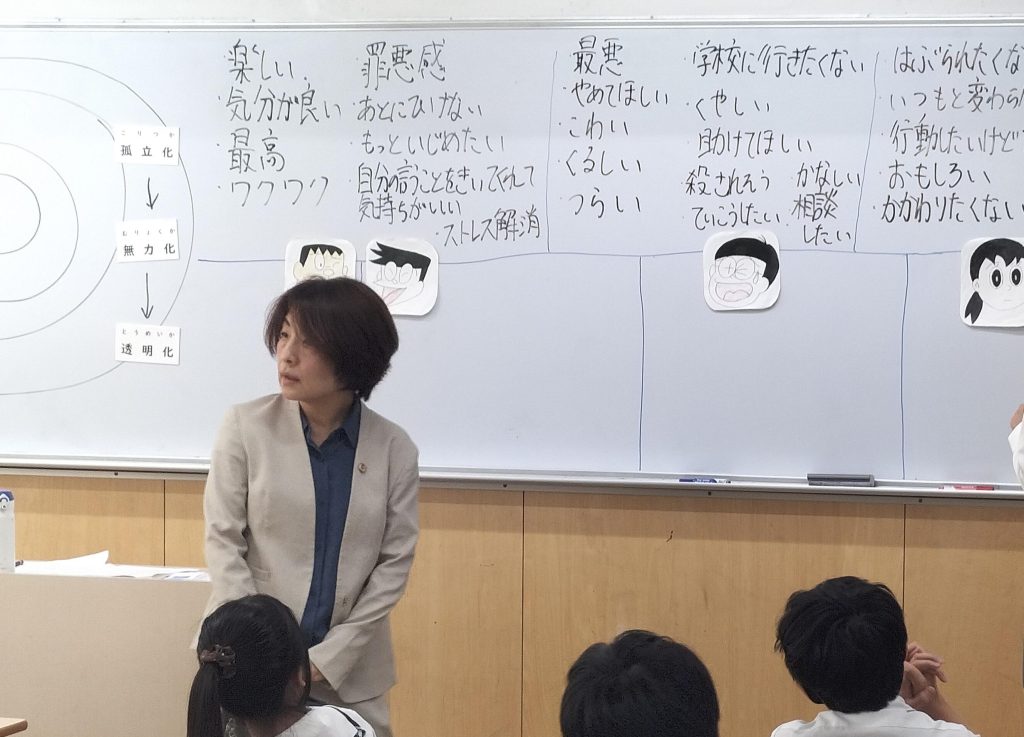 こりつか
孤立化
むりょくか
無力化
とうめいか
透明化
・楽しい
・気分が良い
・最高
・ワクワク
・罪悪感
・あとにひけない
・もっといじめたい
・自分の言うことをきいてくれて
気持ちがいい
・ストレス解消
・最悪
・やめてほしい
・こわい
・くるしい
・つらい
・学校に行きたくない
・くやしい
・助けてほしい
・殺されそう
・ていこうしたい
・かなしい
・相談
したい
・はぶられたくな
・いつもと変わら
・行動したいけど
・おもしろい
・かかわりたくない